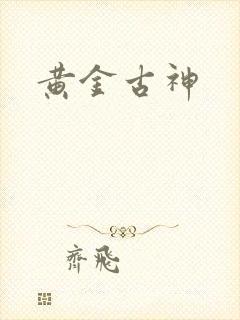 黄金古神
齊飛